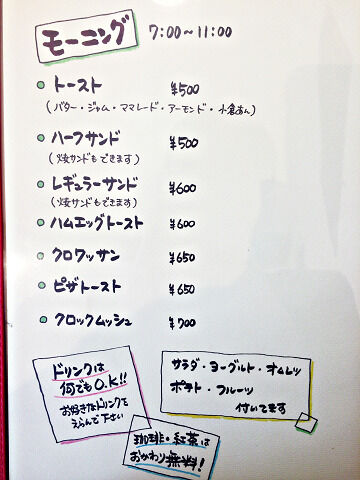 モーニング 7:00~11:00
トースト ¥500
(バター・ジャム・ママレード・アーモンド・小倉あん)
ハーフサンド ¥500
(焼サンドもできます)
レギュラーサンド ¥600
(焼サンドもできます)
ハムエッグトースト ¥600
クロワッサン ¥650
ピザトースト ¥650
クロックムッシュ ¥700
ドリンクは
何でもO.K!!
お好きなドリンクを
えらんで下さい
サラダ・ヨーグルト・オムレツ
ポテト・フルーツ
付いてます
珈琲・紅茶は
おかわり無料!